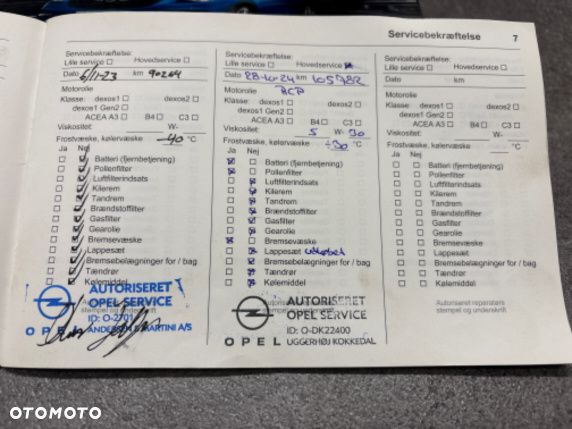 Servicebekræftelse 7
Servicebekræftelse:
Lille service Hovedservice
Dato 6/11-23 km 90264
Motorolie
Klasse: dexos1 dexos2
dexos1 Gen2
ACEA A3 B4 C3
Viskositet: W-
Frostvæske, kølervæske -40 °C
Ja Nej
Batteri (fjernbetjening)
Pollenfilter
Luftfilterindsats
Kilerem
Tandrem
Brændstoffilter
Gasfilter
Gearolie
Bremsevæske
Lappesæt
Bremsebelægninger for / bag
Tændrør
Kølemiddel
AUTORISERET
OPEL SERVICE
ID: O-2701
OPEL ANDERSEN & MARTINI A/S
Servicebekræftelse:
Lille service Hovedservice
Dato 28-10-24 km 105782
Motorolie
Klasse: dexos1 dexos2
dexos1 Gen2
ACEA A3 B4 C3
Viskositet: 5 W- 30
Frostvæske, kølervæske -30 °C
Ja Nej
Batteri (fjernbetjening)
Pollenfilter
Luftfilterindsats
Kilerem
Tandrem
Brændstoffilter
Gasfilter
Gearolie
Bremsevæske
Lappesæt
Bremsebelægninger for / bag
Tændrør
Kølemiddel
AUTORISERET
OPEL SERVICE
ID: O-DK22400
OPEL UGGERHØJ KOKKEDAL
Servicebekræftelse:
Lille service Hovedservice
Dato km
Motorolie
Klasse: dexos1 dexos2
dexos1 Gen2
ACEA A3 B4 C3
Viskositet: W-
Frostvæske, kølervæske °C
Ja Nej
Batteri (fjernbetjening)
Pollenfilter
Luftfilterindsats
Kilerem
Tandrem
Brændstoffilter
Gasfilter
Gearolie
Bremsevæske
Lappesæt
Bremsebelægninger for / bag
Tændrør
Kølemiddel
Autoriseret reparatørs
stempel og underskrift
OTOMOTO